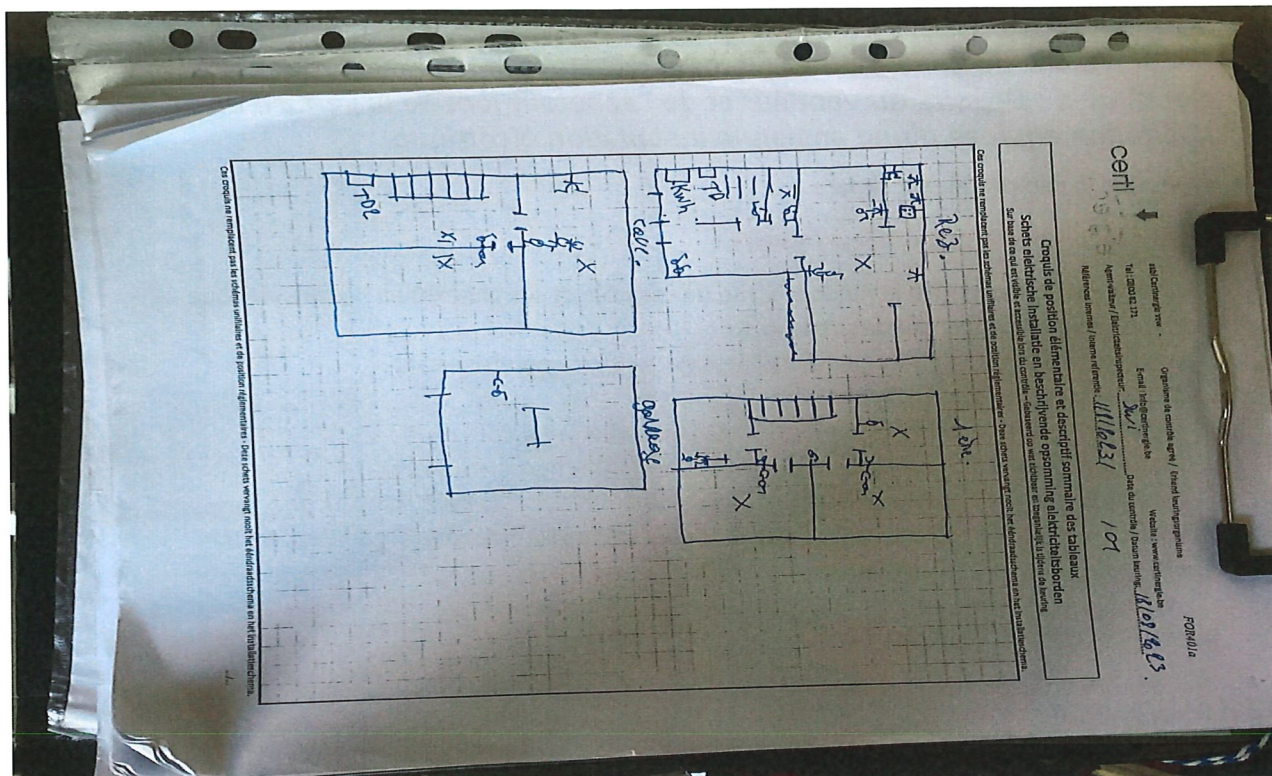 FOR401a
certi
asbl Certinergie vzw - Organisme de contrôle agréé / Erkend keuringsorganisme
Tel : 0800 82 171 E-mail : info@certinergie.be Website : www.certinergie.be
Agent-visiteur / Elektriciteitsinspecteur: Date du contrôle / Datum keuring: 18/09/2023
Références internes / Interne referentie: / 01
Croquis de position élémentaire et descriptif sommaire des tableaux
Schets elektrische installatie en beschrijvende opsomming elektriciteitsborden
Sur base de ce qui est visible et accessible lors du contrôle – Gebaseerd op wat zichtbaar en toegankelijk is tijdens de keuring
Ces croquis ne remplacent pas les schémas unifilaires et de position réglementaires - Deze schets vervangt nooit het ééndraadsschema en het installatieschema.
Rez. 1ère.
TD
Kwh
Cave. garage
TD2
Ces croquis ne remplacent pas les schémas unifilaires et de position réglementaires - Deze schets vervangt nooit het ééndraadsschema en het installatieschema.